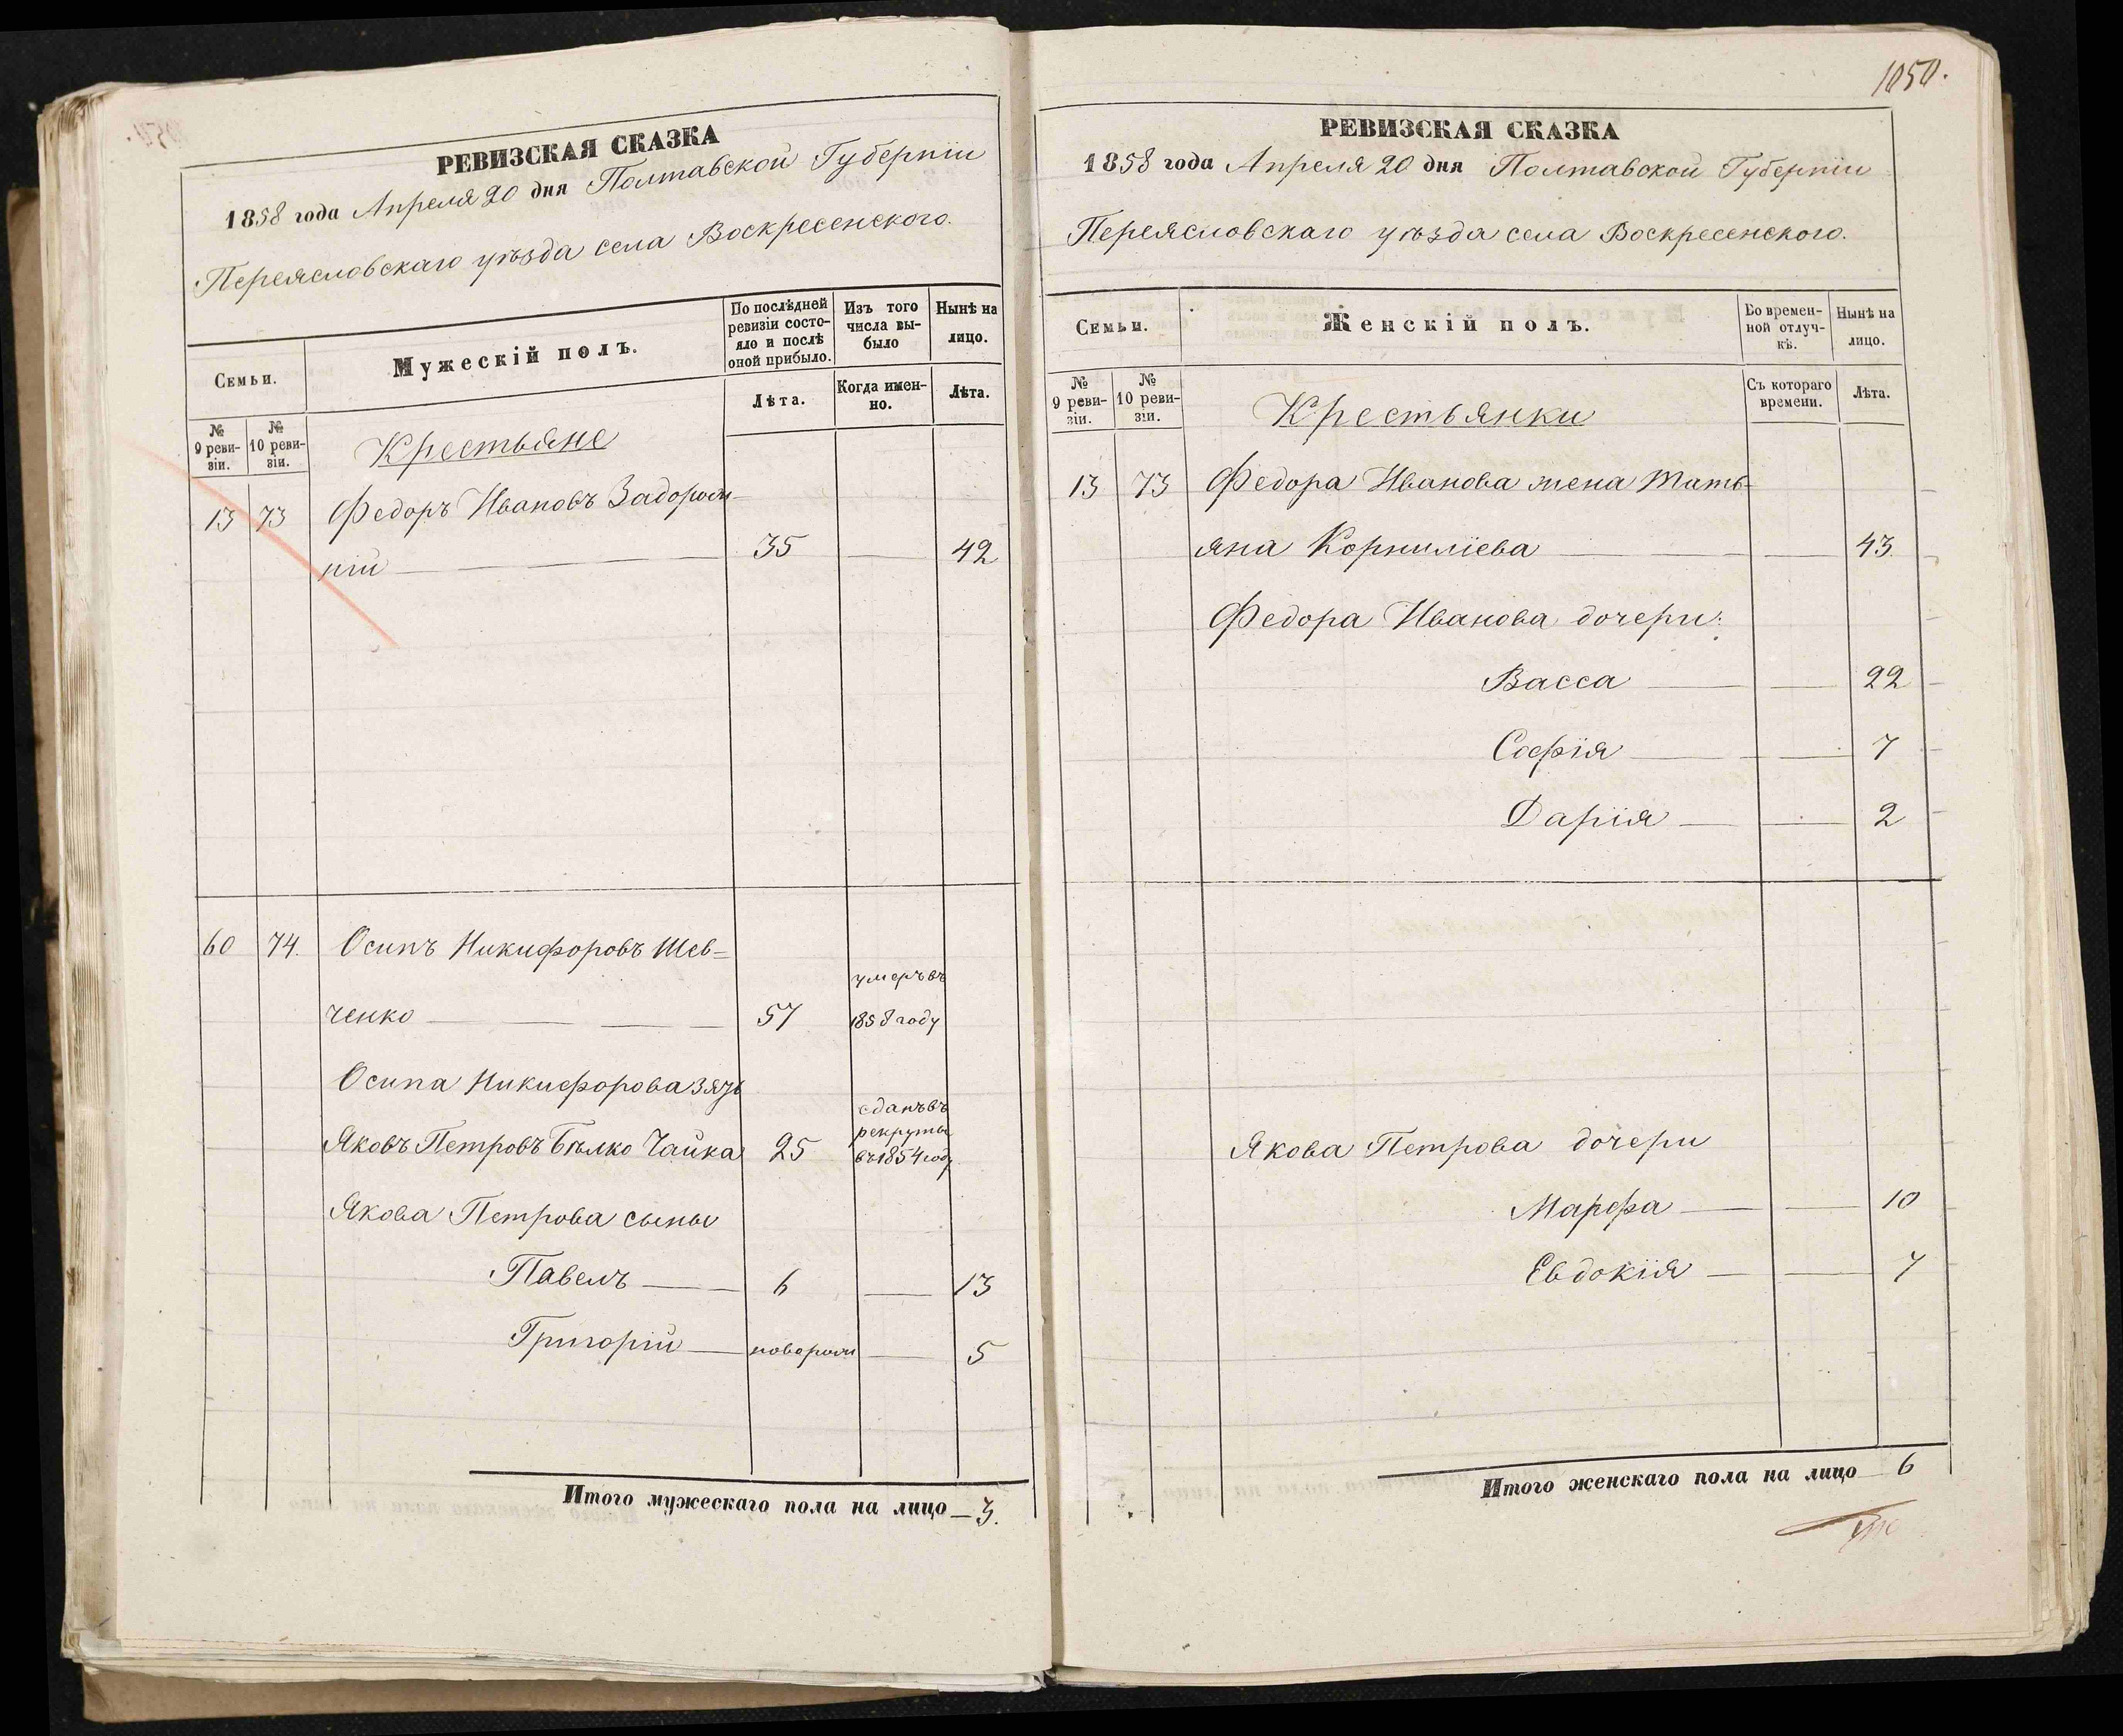 РЕВИЗСКАЯ СКАЗКА
1858 года Апреля 20 дня Полтавской Губерніи
Переясловскаго уѣзда села Воскресенского.
Семьи.
Мужескій полъ.
По послѣдней ревизіи состояло и послѣ оной прибыло.
Изъ того числа выбыло
Нынѣ на лицо.
№ 9 ревизіи.
№ 10 ревизіи.
Лѣта.
Когда именно.
Лѣта.
Крестьяне
13 73 Федоръ Ивановъ Задорож
ній 35 — 42
60 74. Осипъ Никифоровъ Шев=
ченко 57 умеръ въ 1858 году
Осипа Никифорова зять
Яковъ Петровъ Бѣлко Чайка 25 сданъ въ рекруты въ 1854 году
Якова Петрова сыны
Павелъ — 6 — 13
Григорій — новорож — 5
Итого мужескаго пола на лицо — 3.
1050.
РЕВИЗСКАЯ СКАЗКА
1858 года Апреля 20 дня Полтавской Губерніи
Переясловскаго уѣзда села Воскресенского.
Семьи.
Женскій полъ.
Во временной отлучкѣ.
Нынѣ на лицо.
№ 9 ревизіи.
№ 10 ревизіи.
Съ котораго времени.
Лѣта.
Крестьянки
13 73 Федора Иванова жена Тать-
яна Корниліева — 43
Федора Иванова дочери:
Васса — 22
Софія — 7
Дарія — 2
Якова Петрова дочери
Марфа — 10
Евдокія — 7
Итого женскаго пола на лицо 6